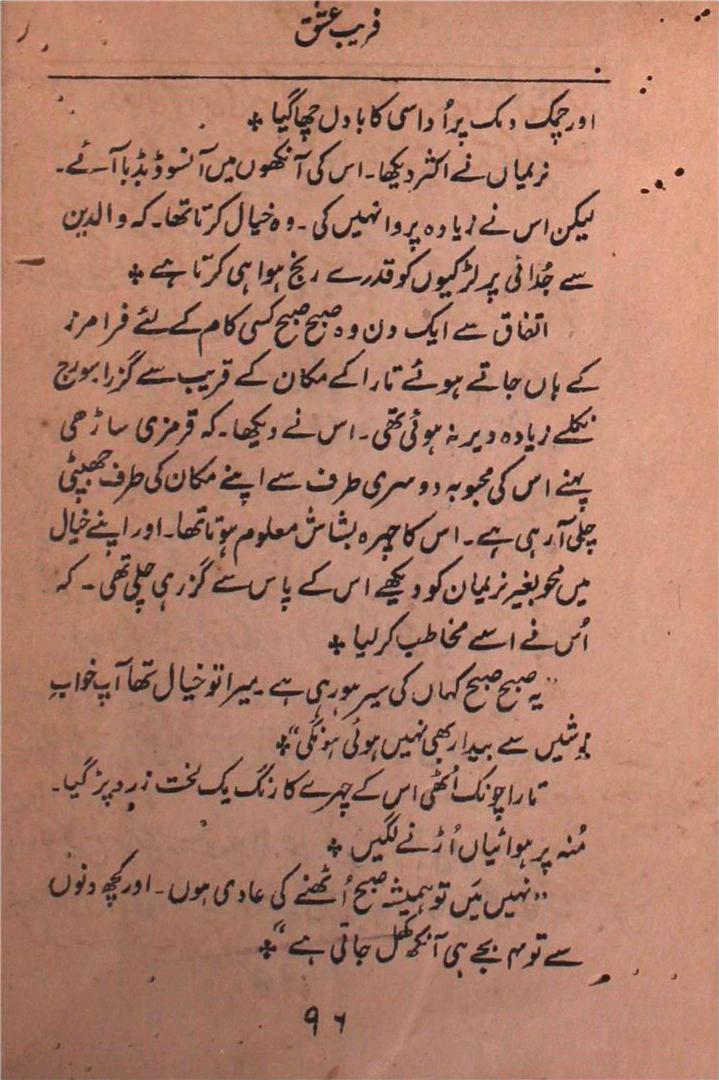 فریب عشق
اور چمک دمک پر اُداسی کا بادل چھا گیا ٭
نریمان نے اکثر دیکھا۔ اس کی آنکھوں میں آنسو ڈبڈبا آئے۔
لیکن اس نے زیادہ پروا نہیں کی۔ وہ خیال کرتا تھا۔ کہ والدین
سے جُدائی پر لڑکیوں کو قدرے رنج ہوا ہی کرتا ہے ٭
اتفاق سے ایک دن وہ صبح صبح کسی کام کے لئے فرامرز
کے ہاں جاتے ہوئے تارا کے مکان کے قریب سے گزرا سورج
نکلے زیادہ دیر نہ ہوئی تھی۔ اس نے دیکھا۔ کہ قرمزی ساڑھی
پہنے اس کی محبوبہ دوسری طرف سے اپنے مکان کی طرف جھپٹی
چلی آ رہی ہے۔ اس کا چہرہ بشاش معلوم ہوتا تھا۔ اور اپنے خیال
میں محو بغیر نریمان کو دیکھے اس کے پاس سے گزر ہی چلی تھی۔ کہ
اُس نے اسے مخاطب کر لیا ٭
"یہ صبح صبح کہاں کی سیر ہو رہی ہے۔ میرا تو خیال تھا آپ خوابِ
نوشیں سے بیدار بھی نہیں ہوئی ہونگی" ٭
تارا چونک اُٹھی اس کے چہرے کا رنگ یک لخت زرد پڑ گیا۔
مُنہ پر ہوائیاں اُڑنے لگیں ٭
"نہیں مَیں تو ہمیشہ صبح اُٹھنے کی عادی ہوں۔ اور کچھ دنوں
سے تو ۴ بجے ہی آنکھ کھل جاتی ہے" ٭
۹۶